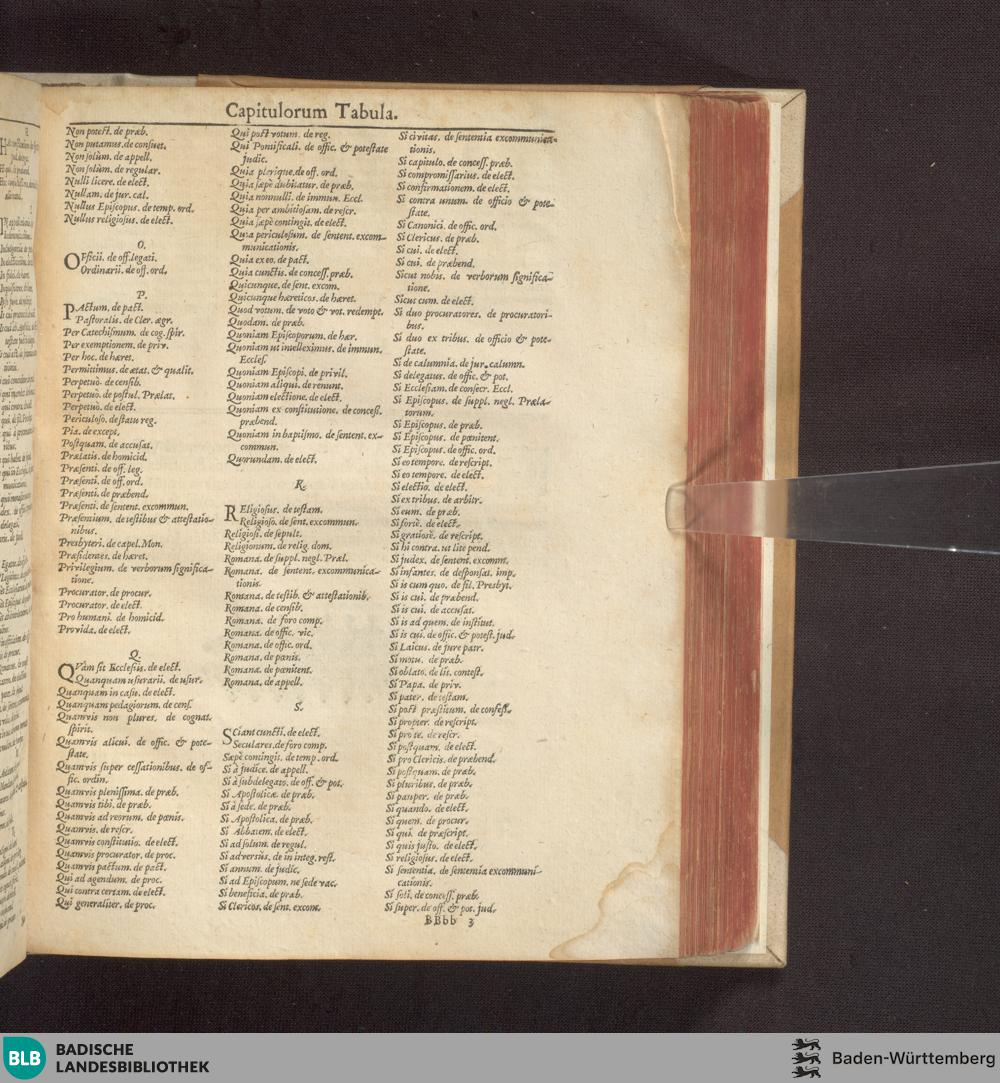 Capitulorum Tabula.
Non potest. de præb.
Non putamus. de consuet.
Non solùm. de appell.
Non solùm. de regular.
Nulli licere. de elect.
Nullam. de jur. cal.
Nullus Episcopus. de temp. ord.
Nullus religiosus. de elect.
O.
OFficii. de off. legati.
Ordinarii. de off. ord.
P.
PActum. de pact.
Pastoralis. de Cler. ægr.
Per Catechismum. de cog. spir.
Per exemptionem. de priv.
Per hoc. de hæret.
Permittimus. de ætat. & qualit.
Perpetuò. de censib.
Perpetuò. de postul. Prælat.
Perpetuò. de elect.
Periculoso. de statu reg.
Pia. de except.
Postquam. de accusat.
Prælatis. de homicid.
Præsenti. de off. leg.
Præsenti. de off. ord.
Præsenti. de præbend.
Præsenti. de sentent. excommun.
Præsentium. de testibus & attestatio-
nibus.
Presbyteri. de capel. Mon.
Præsidentes. de hæret.
Privilegium. de verborum significa-
tione.
Procurator. de procur.
Procurator. de elect.
Pro humani. de homicid.
Provida. de elect.
Q.
QVàm sit Ecclesiis. de elect.
Quanquam usurarii. de usur.
Quanquam in casio. de elect.
Quanquam pedagiorum. de cens.
Quamvis non plures. de cognat.
spirit.
Quamvis alicui. de offic. & pote-
state.
Quamvis super cessationibus. de of-
fic. ordin.
Quamvis plenissima. de præb.
Quamvis tibi. de præb.
Quamvis ad reorum. de pœnis.
Quamvis. de rescr.
Quamvis constitutio. de elect.
Quamvis procurator. de proc.
Quamvis pactum. de pact.
Qui ad agendum. de proc.
Qui contra certam. de elect.
Qui generaliter. de proc.
Qui post votum. de reg.
Qui Pontificali. de offic. & potestate
judic.
Quia plerique. de off. ord.
Quia sæpè dubitatur. de præb.
Quia nonnulli. de immun. Eccl.
Quia per ambitiosam. de rescr.
Quia sæpè contingit. de elect.
Quia periculosum. de sentent. excom-
municationis.
Quia ex eo. de pact.
Quia cunctis. de concess. præb.
Quicunque. de sent. excom.
Quicunque hæreticos. de hæret.
Quod votum. de voto & vot. redempt.
Quodam. de præb.
Quoniam Episcoporum. de hær.
Quoniam ut intelleximus. de immun.
Eccles.
Quoniam Episcopi. de privil.
Quoniam aliqui. de renunt.
Quoniam electione. de elect.
Quoniam ex constitutione. de concess.
præbend.
Quoniam in baptismo. de sentent. ex-
commun.
Quorundam. de elect.
R.
REligiosus. de testam.
Religioso. de sent. excommun.
Religiosi. de sepult.
Religionum. de relig. dom.
Romana. de suppl. negl. Præl.
Romana. de sentent. excommunica-
tionis.
Romana. de testib. & attestationib.
Romana. de censib.
Romana. de foro comp.
Romana. de offic. vic.
Romana. de offic. ord.
Romana. de pœnis.
Romana. de pœnitent.
Romana. de appell.
S.
SCiant cuncti. de elect.
Seculares. de foro comp.
Sæpè contingit. de temp. ord.
Si à judice. de appell.
Si à subdelegato. de off. & pot.
Si Apostolicæ. de præb.
Si à sede. de præb.
Si Apostolica. de præb.
Si Abbatem. de elect.
Si ad solum. de regul.
Si adversus. de in integ. rest.
Si annum. de judic.
Si ad Episcopum. ne sede vac.
Si beneficia. de præb.
Si Clericos. de sent. excom.
Si civitas. de sententia excommunica-
tionis.
Si capitulo. de concess. præb.
Si compromissarius. de elect.
Si confirmationem. de elect.
Si contra unum. de officio & pote-
state.
Si Canonici. de offic. ord.
Si Clericus. de præb.
Si cui. de elect.
Si cui. de præbend.
Sicut nobis. de verborum significa-
tione.
Sicut cum. de elect.
Si duo procuratores. de procuratori-
bus.
Si duo ex tribus. de officio & pote-
state.
Si de calumnia. de jur. calumn.
Si delegatus. de offic. & pot.
Si Ecclesiam. de consecr. Eccl.
Si Episcopus. de suppl. negl. Præla-
torum.
Si Episcopus. de præb.
Si Episcopus. de pœnitent.
Si Episcopus. de offic. ord.
Si eo tempore. de rescript.
Si eo tempore. de elect.
Si electio. de elect.
Si ex tribus. de arbitr.
Si eum. de præb.
Si fortè. de elect.
Si gratiosè. de rescript.
Si hi contra. ut lite pend.
Si judex. de sentent. excomm.
Si infantes. de desponsat. imp.
Si is cum quo. de fil. Presbyt.
Si is cui. de præbend.
Si is cui. de accusat.
Si is ad quem. de institut.
Si is cui. de offic. & potest. jud.
Si Laicus. de jure patr.
Si motu. de præb.
Si oblato. de lit. contest.
Si Papa. de priv.
Si pater. de testam.
Si post præstitum. de confess.
Si propter. de rescript.
Si pro te. de rescr.
Si postquam. de elect.
Si pro Clericis. de præbend.
Si postquam. de præb.
Si pluribus. de præb.
Si pauper. de præb.
Si quando. de elect.
Si quem. de procur.
Si qui. de præscript.
Si quis justo. de elect.
Si religiosus. de elect.
Si sententia. de sententia excommuni-
cationis.
Si soli. de concess. præb.
Si super. de off. & pot. jud.
BBbb 3
BLB
BADISCHE
LANDESBIBLIOTHEK
Baden-Württemberg